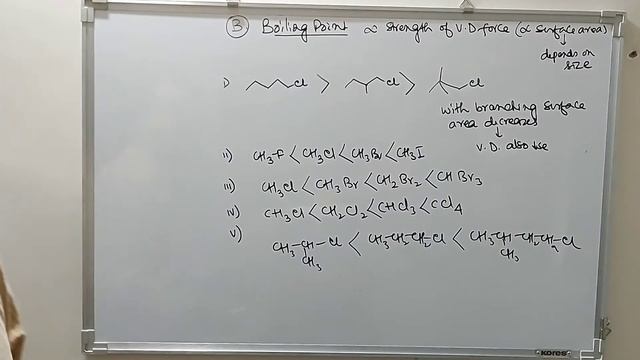 B Boiling Point ∝ strength of V.D. force (∝ surface area)
depends on
size
i) Cl > Cl > Cl
with branching surface
area decreases
V.D. also ↓se
ii) CH3-F < CH3Cl < CH3Br < CH3I
iii) CH3Cl < CH3Br < CH2Br2 < CHBr3
iv) CH3Cl < CH2Cl2 < CHCl3 < CCl4
v) CH3-CH-Cl < CH3-CH2-CH2Cl < CH3-CH-CH2-CH2-Cl
CH3 CH3
KORES